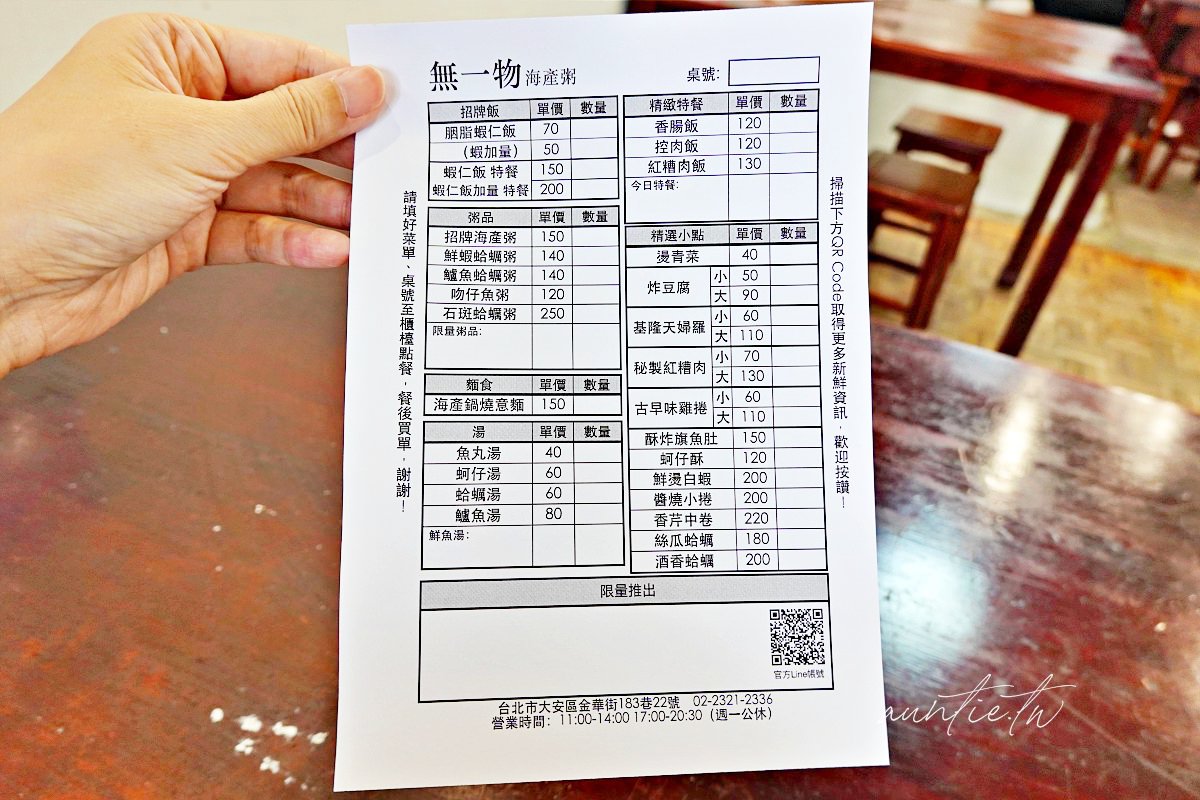 無一物 海產粥
桌號:
招牌飯 單價 數量
胭脂蝦仁飯 70
（蝦加量） 50
蝦仁飯 特餐 150
蝦仁飯加量 特餐 200
粥品 單價 數量
招牌海產粥 150
鮮蝦蛤蠣粥 140
鱸魚蛤蠣粥 140
吻仔魚粥 120
石斑蛤蠣粥 250
限量粥品:
麵食 單價 數量
海產鍋燒意麵 150
湯 單價 數量
魚丸湯 40
蚵仔湯 60
蛤蠣湯 60
鱸魚湯 80
鮮魚湯:
精緻特餐 單價 數量
香腸飯 120
控肉飯 120
紅糟肉飯 130
今日特餐:
精選小點 單價 數量
燙青菜 40
炸豆腐 小 50
大 90
基隆天婦羅 小 60
大 110
秘製紅糟肉 小 70
大 130
古早味雞捲 小 60
大 110
酥炸旗魚肚 150
蚵仔酥 120
鮮燙白蝦 200
醬燒小捲 200
香芹中卷 220
絲瓜蛤蠣 180
酒香蛤蠣 200
限量推出
官方Line帳號
台北市大安區金華街183巷22號 02-2321-2336
營業時間：11:00-14:00 17:00-20:30（週一公休）
請填好菜單、桌號至櫃檯點餐，餐後買單，謝謝！
掃描下方QR Code取得更多新鮮資訊，歡迎按讚！
auntie.tw